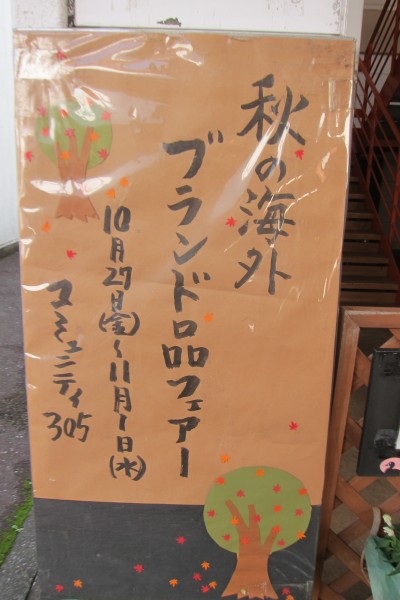 秋の海外
ブランド品フェアー
10月27日(金)〜11月1日(水)
コミュニティ
305